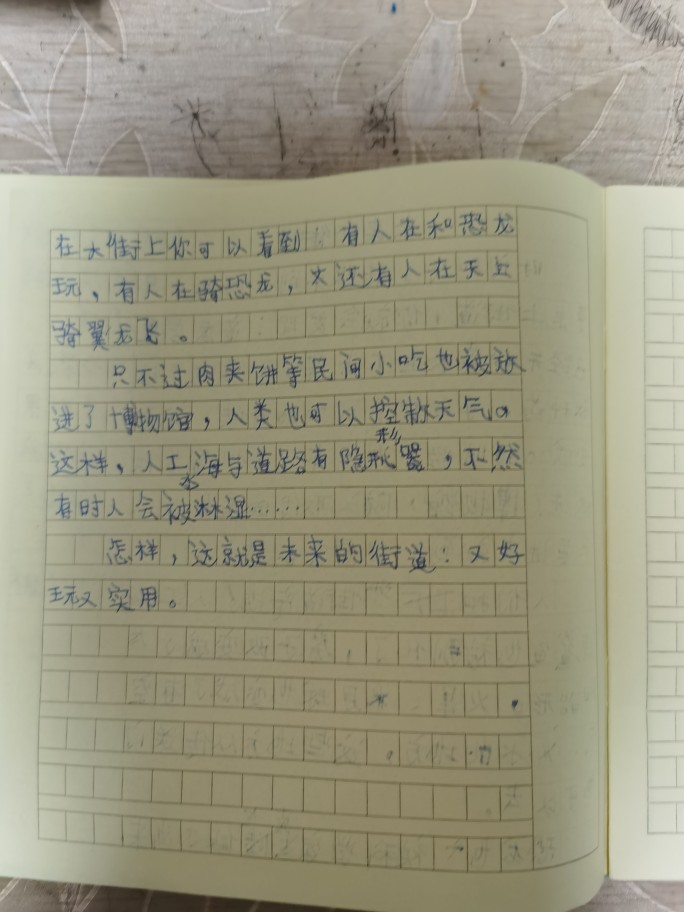 在大街上你可以看到:有人在和恐龙
玩,有人在骑恐龙,还有人在天上
骑翼龙飞。
只不过肉夹饼等民间小吃也被放
进了博物馆,人类也可以控制天气。
这样,人工海与道路有隐形器,不然
有时人会被淋湿……
怎样,这就是未来的街道:又好
玩又实用。